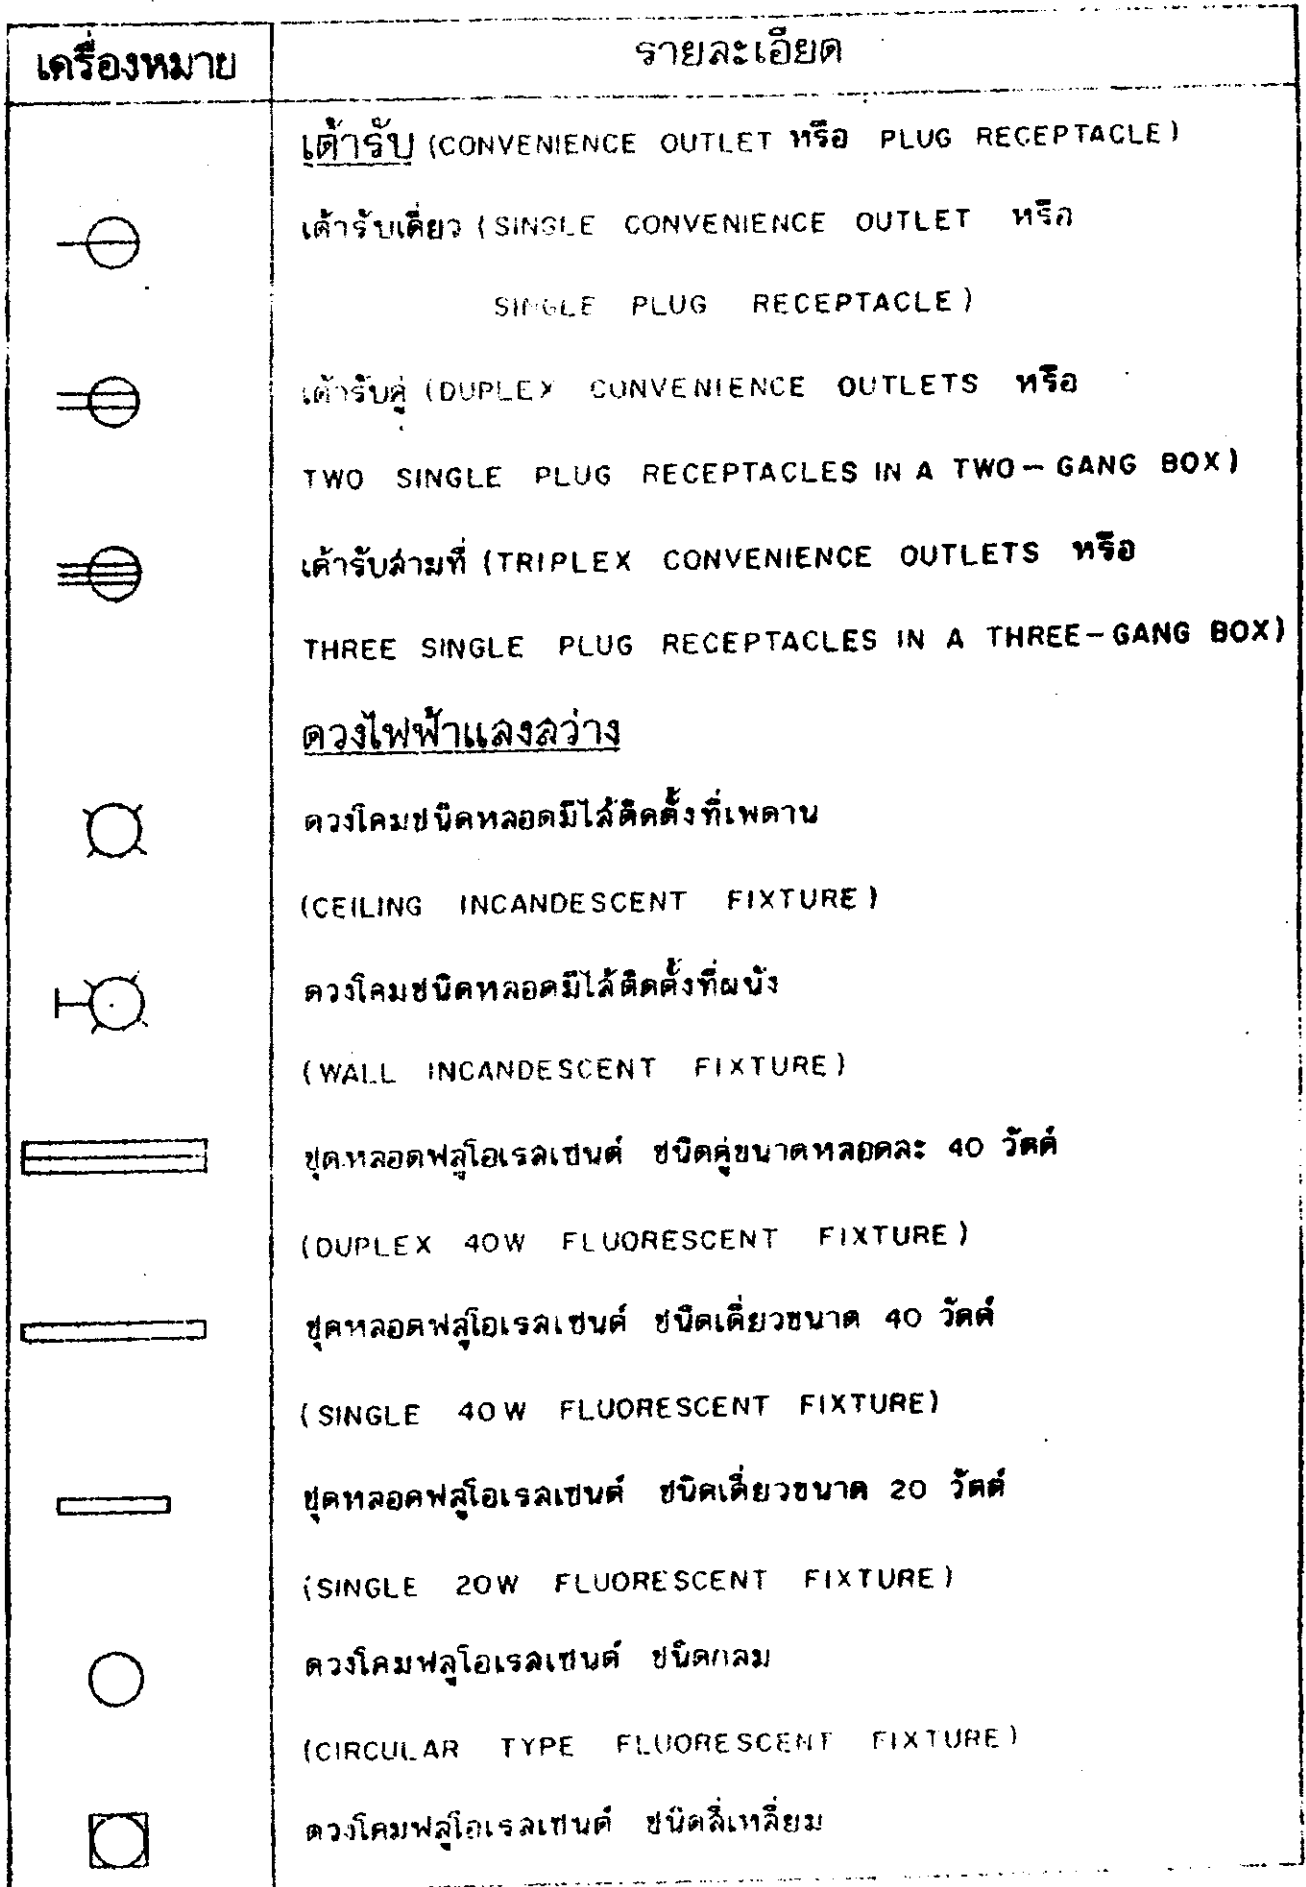 เครื่องหมาย
รายละเอียด
เต้ารับ (CONVENIENCE OUTLET หรือ PLUG RECEPTACLE)
เต้ารับเดี่ยว (SINGLE CONVENIENCE OUTLET หรือ
SINGLE PLUG RECEPTACLE)
เต้ารับคู่ (DUPLEX CONVENIENCE OUTLETS หรือ
TWO SINGLE PLUG RECEPTACLES IN A TWO-GANG BOX)
เต้ารับสามที่ (TRIPLEX CONVENIENCE OUTLETS หรือ
THREE SINGLE PLUG RECEPTACLES IN A THREE-GANG BOX)
ดวงไฟฟ้าแสงสว่าง
ดวงโคมชนิดหลอดมีไส้ติดตั้งที่เพดาน
(CEILING INCANDESCENT FIXTURE)
ดวงโคมชนิดหลอดมีไส้ติดตั้งที่ผนัง
(WALL INCANDESCENT FIXTURE)
ชุดหลอดฟลูโอเรสเซนต์ ชนิดคู่ขนาดหลอดละ 40 วัตต์
(DUPLEX 40W FLUORESCENT FIXTURE)
ชุดหลอดฟลูโอเรสเซนต์ ชนิดเดี่ยวขนาด 40 วัตต์
(SINGLE 40W FLUORESCENT FIXTURE)
ชุดหลอดฟลูโอเรสเซนต์ ชนิดเดี่ยวขนาด 20 วัตต์
(SINGLE 20W FLUORESCENT FIXTURE)
ดวงโคมฟลูโอเรสเซนต์ ชนิดกลม
(CIRCULAR TYPE FLUORESCENT FIXTURE)
ดวงโคมฟลูโอเรสเซนต์ ชนิดสี่เหลี่ยม